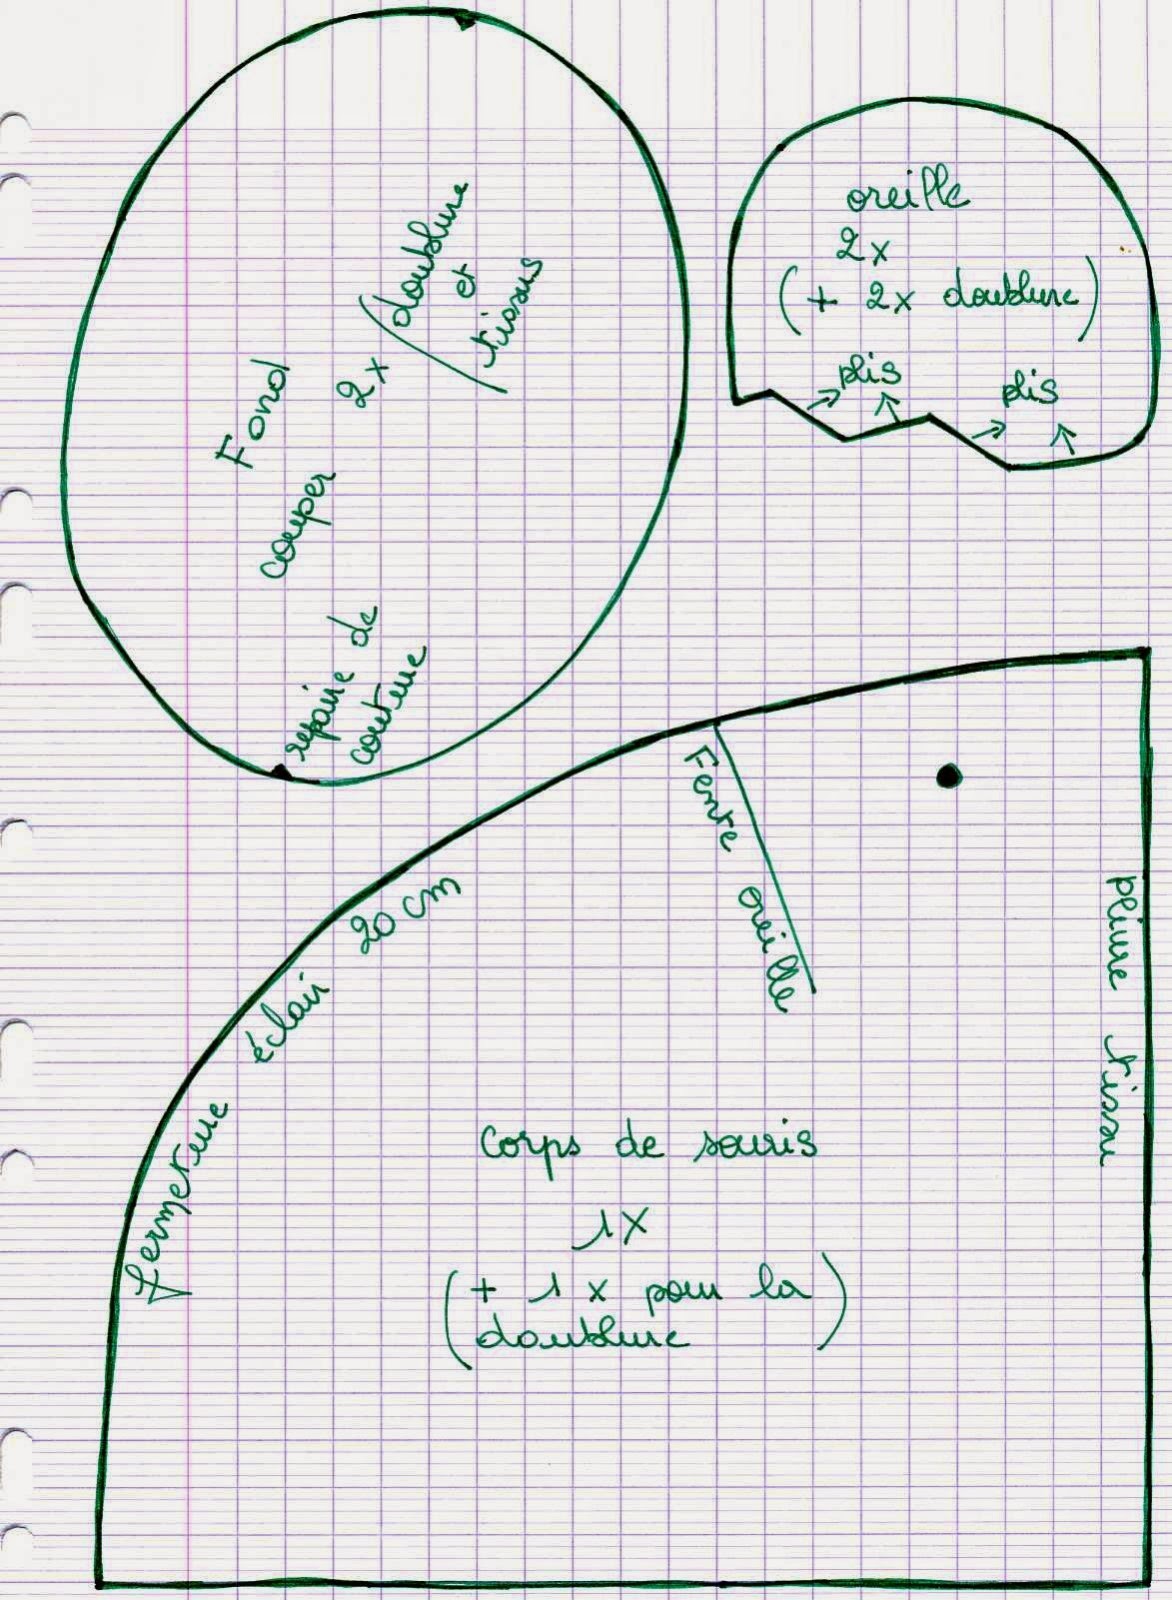 Fond
couper 2x (doublure
et
tissus
repaire de
couture
oreille
2x
(+ 2x doublure)
plis
plis
Fente oreille
pliure tissu
fermeture éclair 20 cm
corps de souris
1X
(+ 1 x pour la
doublure)